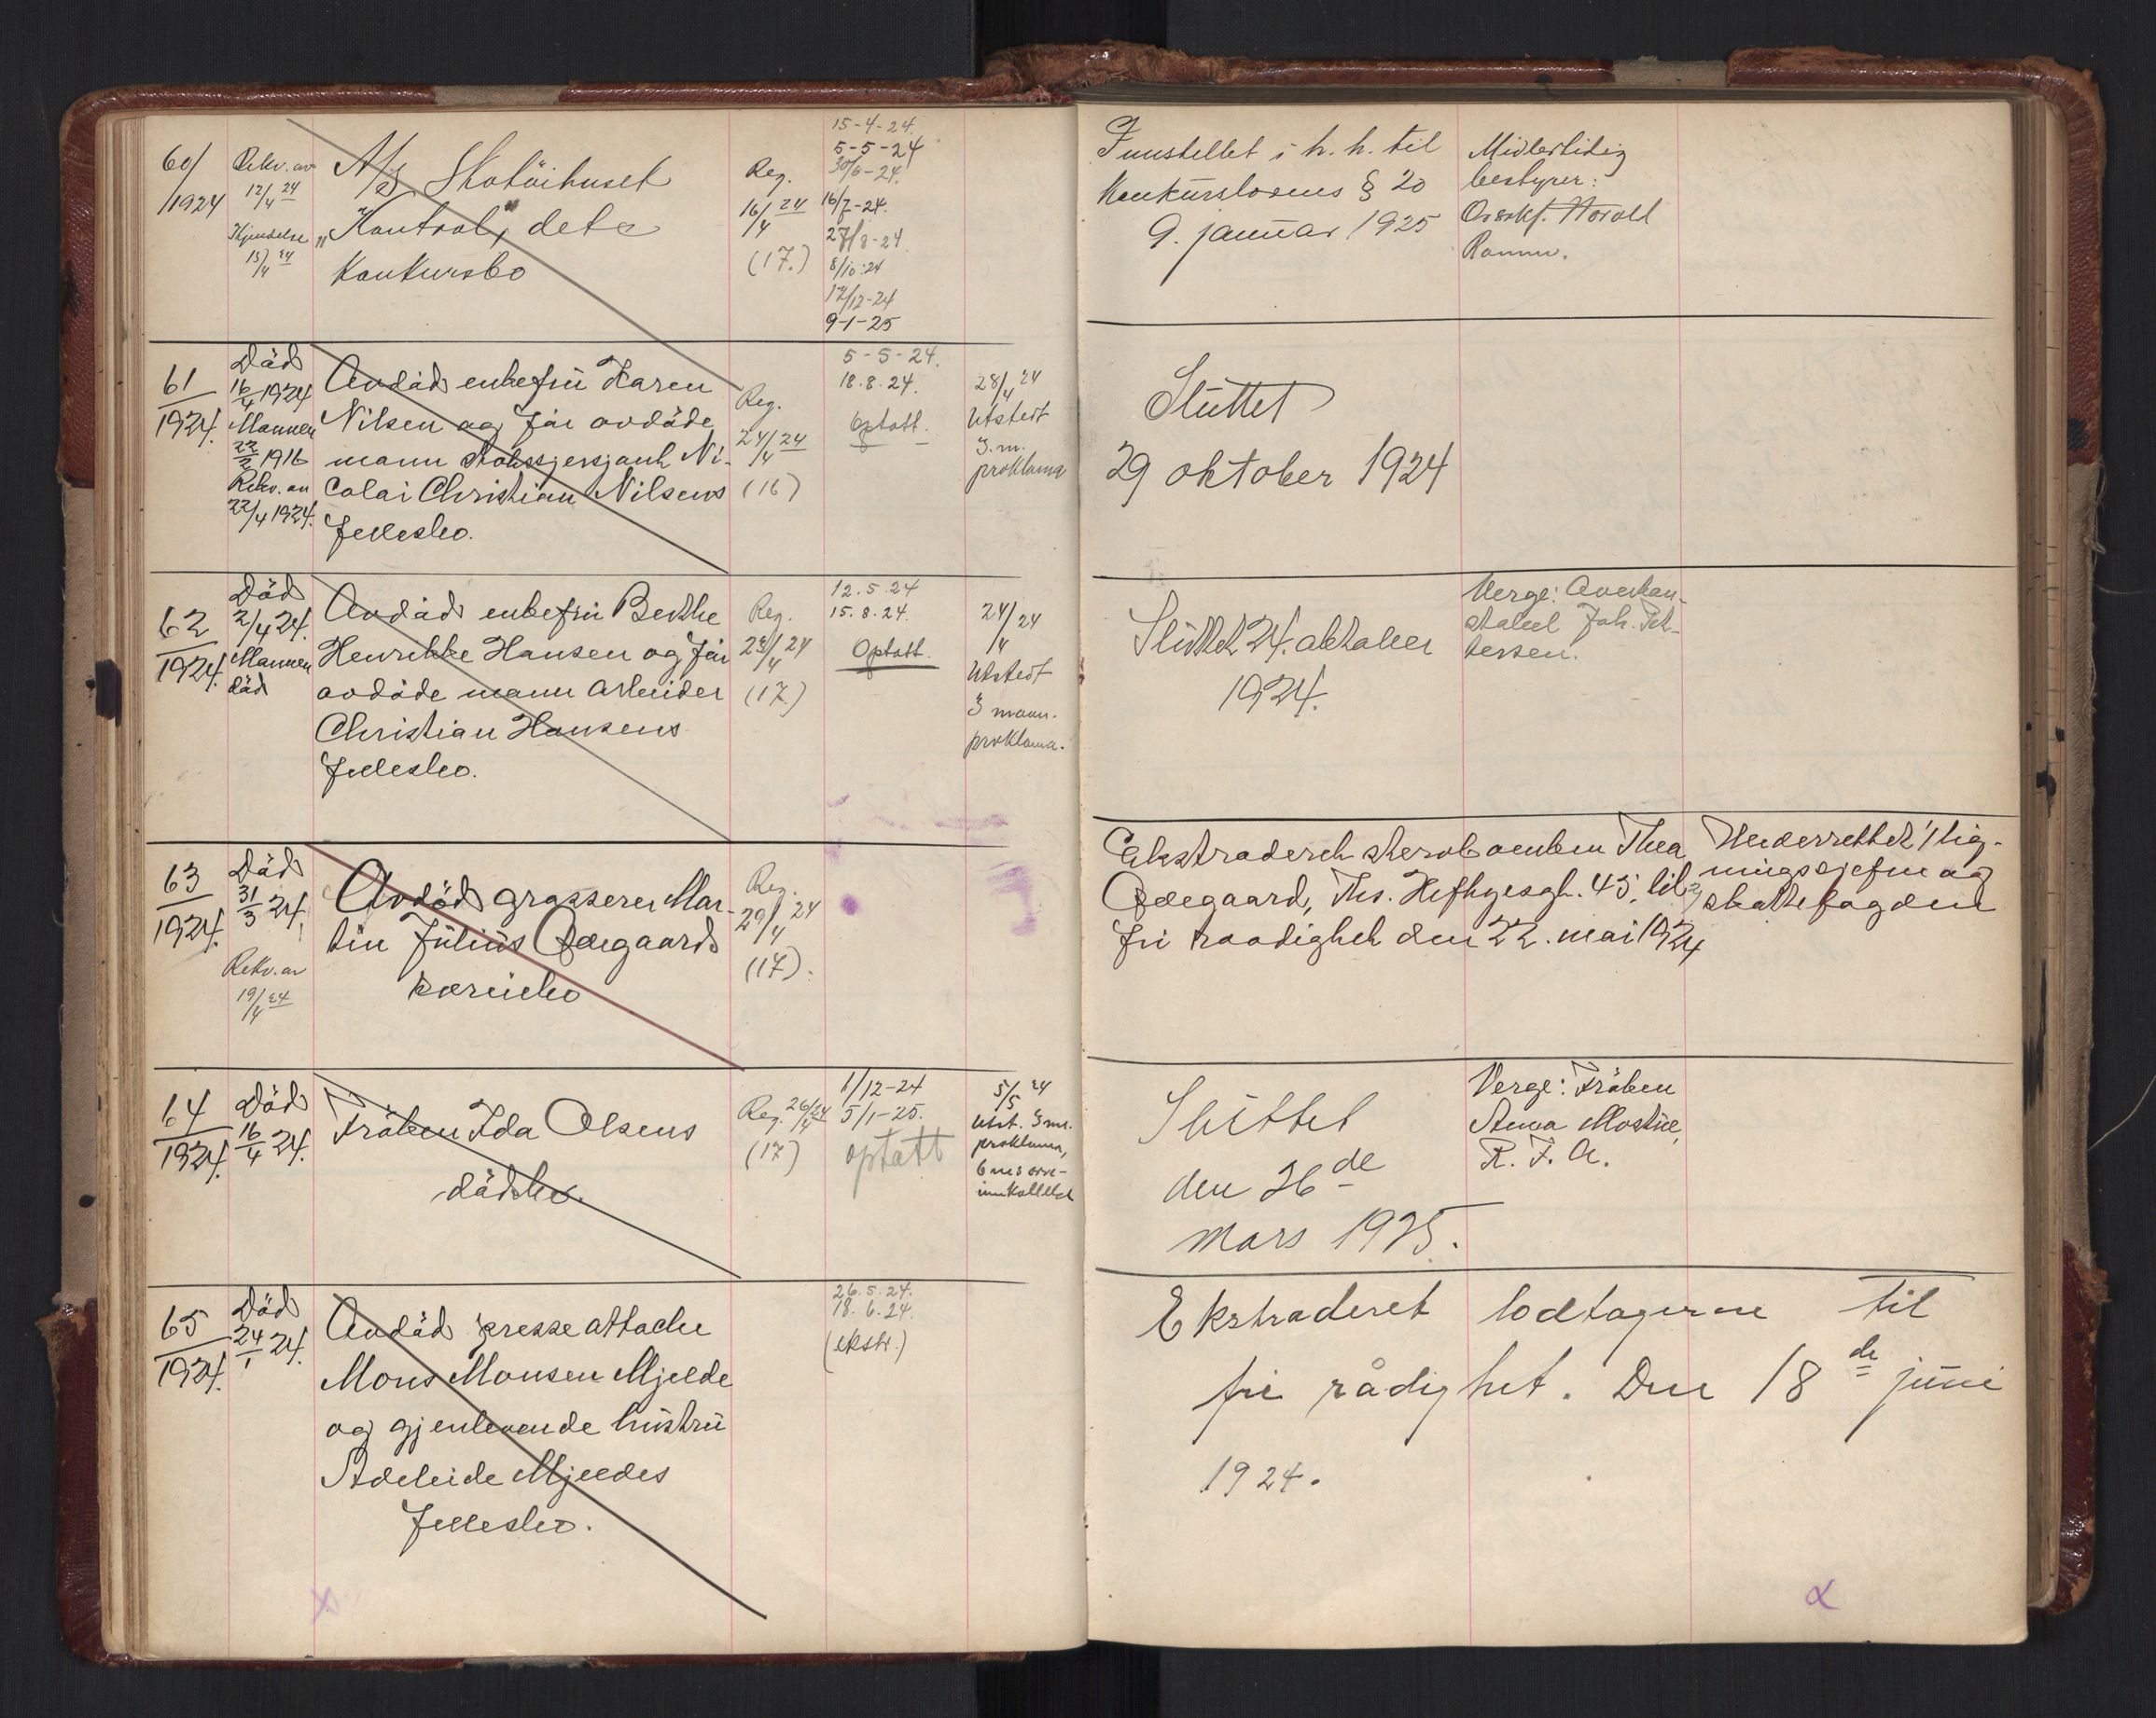 60/
/1924
Rekv. av
12/4 24
Kjendelse
15/4 24
A/S Skotöihuset
„Kontrol", dets
Konkursbo
Reg.
16/4 24
(17.)
15-4-24.
5-5-24
30/6-24.
16/7-24.
27/8-24
8/10-24
17/12-24
9-1-25
Innstillet i h. h. til
Konkurslovens § 20
9. januar 1925
Midlertidig
bestyrer:
Overrkf. Harald
61
1924.
Död
16/4 1924
Mannen
22/2 1916
Rekv. av
22/4 1924.
Avdöd enkefru Karen
Nilsen og för avdöde
mann
Ni-
colai Christian Nilsens
fellesbo.
Reg.
24/4 24
(16)
5-5-24.
18.8.24.
Optatt.
28/4 24
Utstedt
3. m.
proklama
Sluttet
29 oktober 1924
62
1924.
Död
2/4 24.
Mannen
död
Avdöd enkefru Berthe
Henrikke Hansen og för
avdöde mann arbeider
Christian Hansens
fellesbo.
Reg.
23/4 24
(17)
12.5.24
15.8.24.
Optatt.
24/4 24
Utstedt
3 maan.
proklama.
Sluttet 24. oktober
1924.
Verge: Overkon-
stabel Joh. Pet-
tersen.
63
1924.
Död
31/3 24.
Rekv. av
19/4 24
Avdöd grosserer Mar-
tin Julius Ödegaards
særeiebo
Reg.
29/4 24
(17).
Ekstraderet sterboenken Thea
Ödegaard, Ths. Heftyesgt. 43, til
fri raadighet den 22. mai 1924
Underrettet lig-
ningssjefen og
skattefogden
64
1924.
Död
16/4 24.
Fröken Ida Olsens
dödsbo.
Reg. 26/4 24
(17)
1/12-24
5/1-25.
optatt
5/5 24
Utst. 3 m.
proklama,
6 mrs arve-
innkallelse
Sluttet
den 26de
mars 1925.
Verge: Fröken
Anna Mostue,
R. F. A.
65
1924.
Död
24/1 24.
Avdöd presseattache
Mons Monsen Mjelde
og gjenlevende hustru
Adeleide Mjeldes
fellesbo.
26.5.24.
18.6.24.
(ekstr.)
Ekstraderet lodtagerne til
fri rådighet. Den 18de juni
1924.